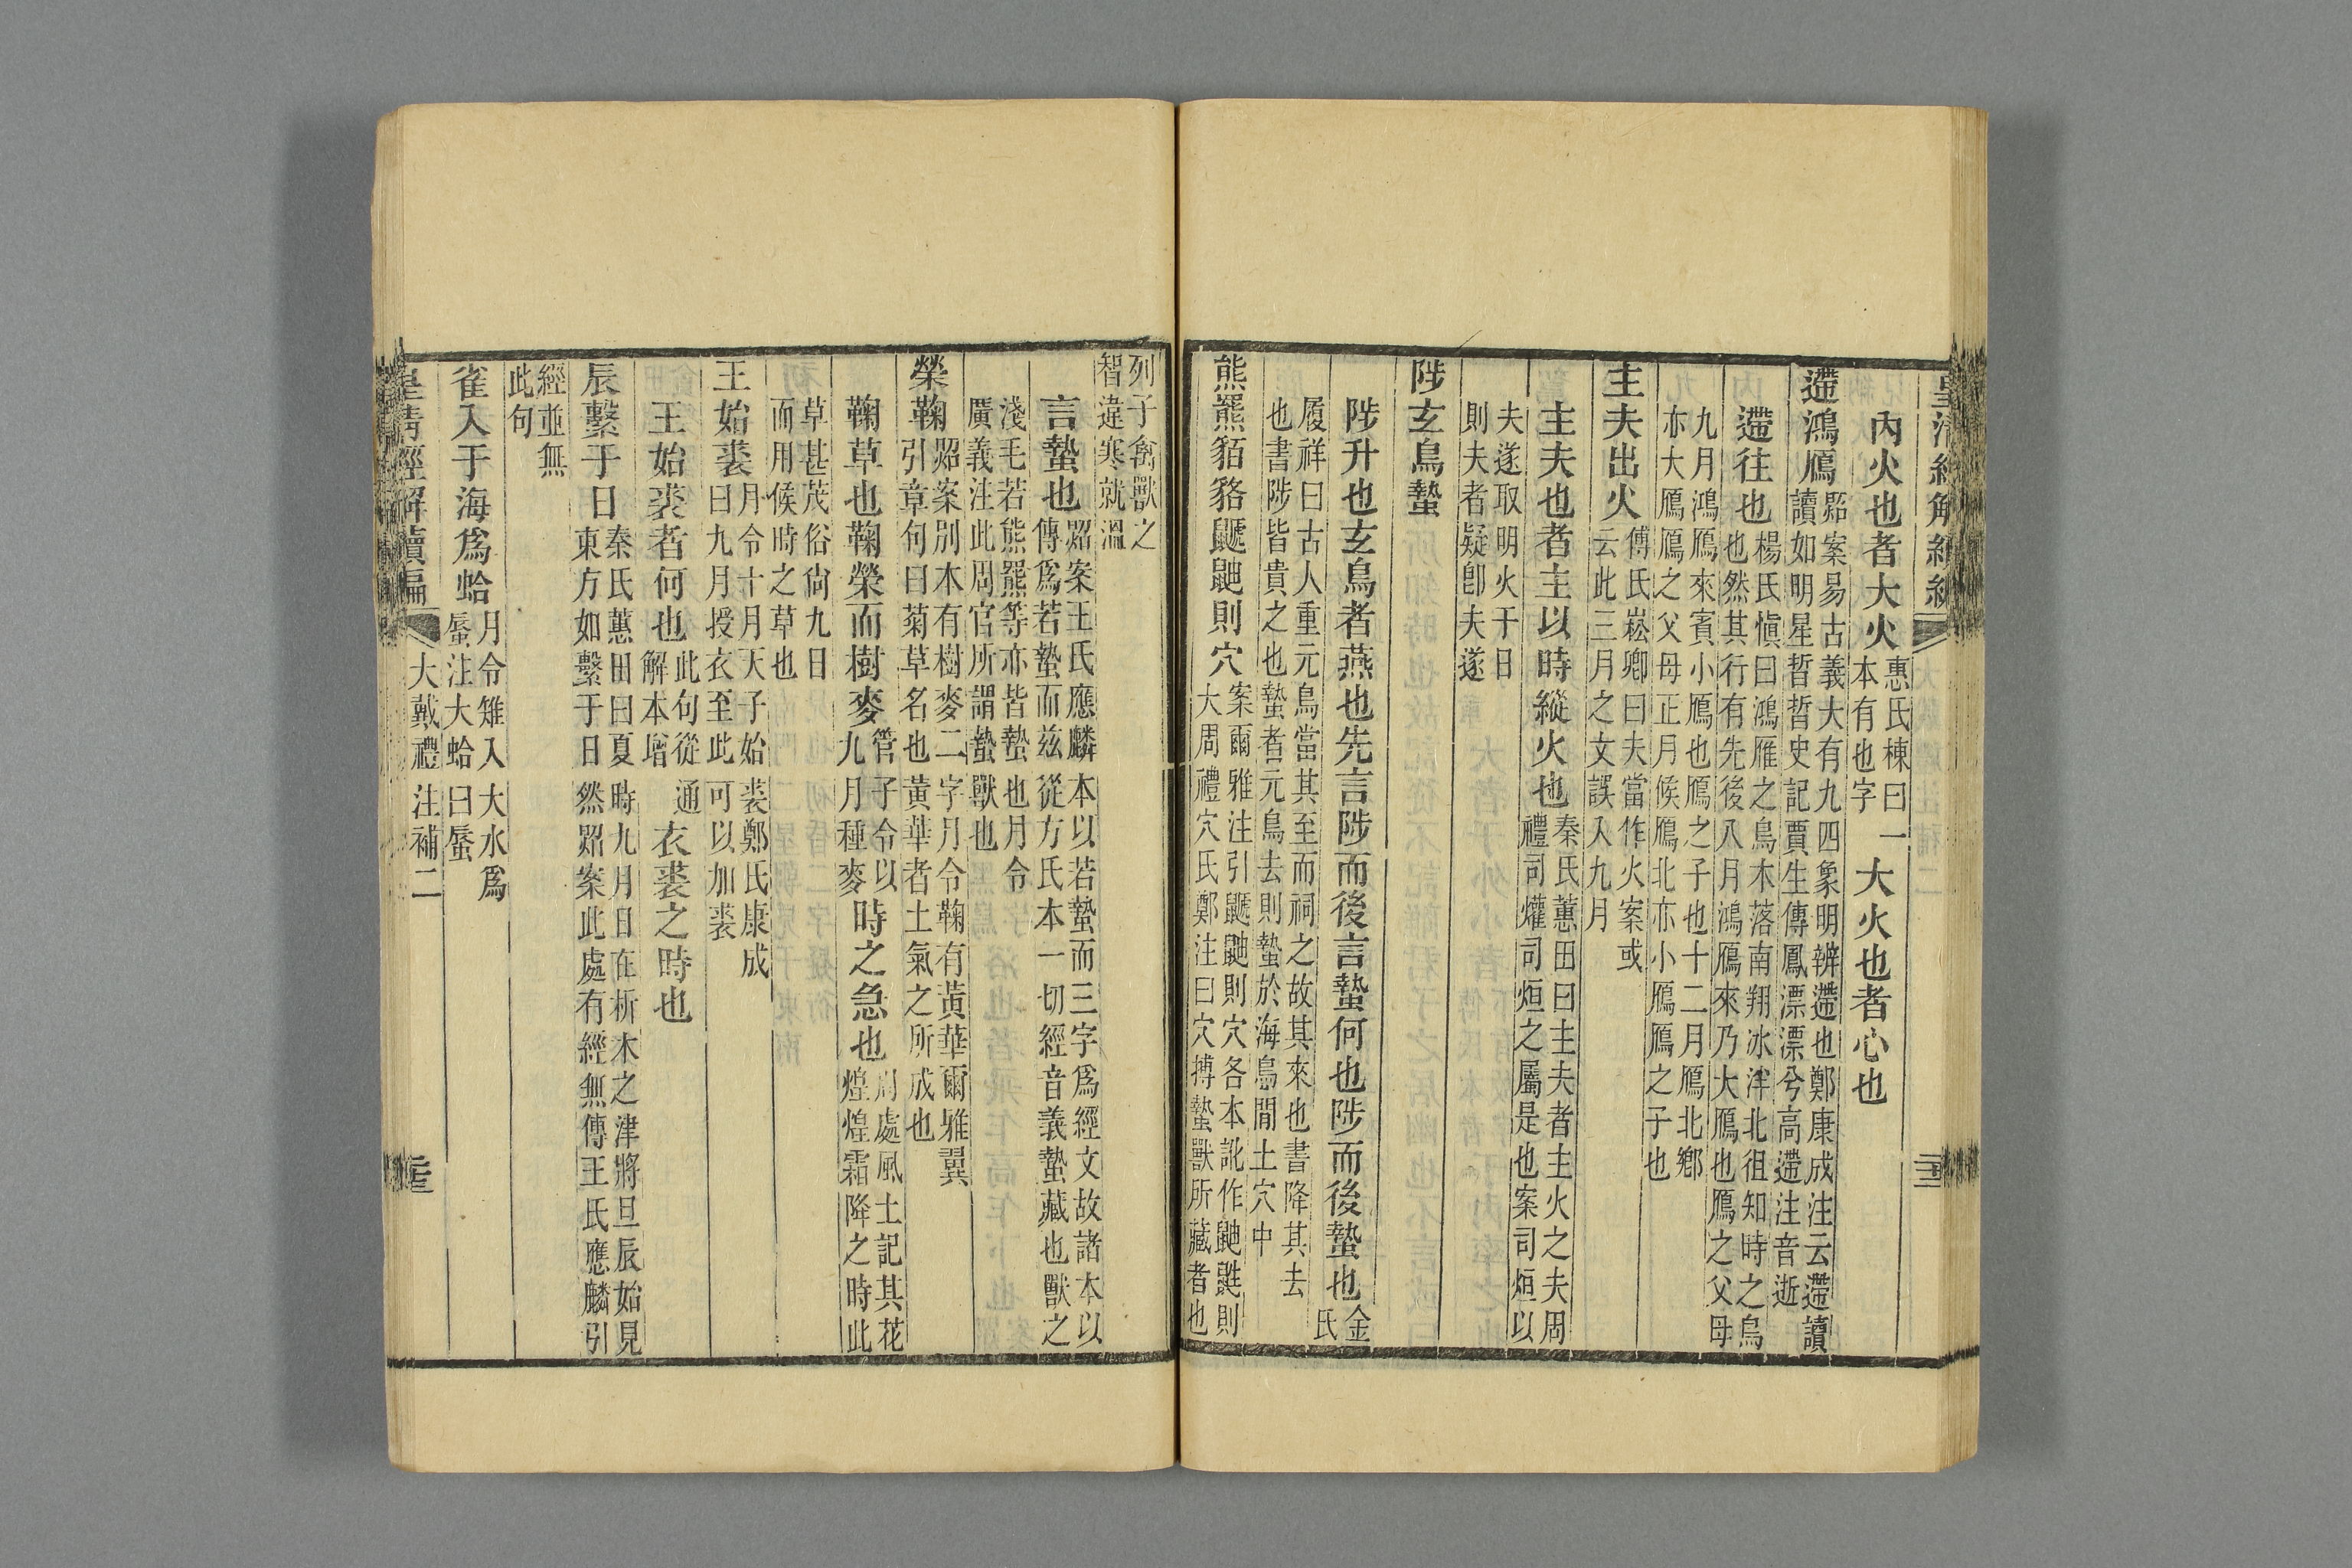 內火也者大火惠氏棟曰一本有也字大火也者心也
遰鴻鴈㷖案易古義大有九四象明辨遰也鄭康成注云遰讀讀如明星晢晢史記賈生傳鳳漂漂兮高遰注音逝
遰往也楊氏愼曰鴻雁之鳥木落南翔冰泮北徂知時之鳥也然其行有先後八月鴻鴈來乃大鴈也鴈之父母
九月鴻鴈來賓小鴈也鴈之子也十二月鴈北鄉亦大鴈鴈之父母正月候鴈北亦小鴈鴈之子也
主夫出火傅氏崧卿曰夫當作火案或云此三月之文誤入九月
主夫也者主以時縱火也秦氏蕙田曰主夫者主火之夫周禮司爟司烜之屬是也案司烜以
夫遂取明火于日則夫者疑卽夫遂
陟玄鳥蟄
陟升也玄鳥者燕也先言陟而後言蟄何也陟而後蟄也金氏
履祥曰古人重元鳥當其至而祠之故其來也書降其去也書陟皆貴之也蟄者元鳥去則蟄於海島閒土穴中
熊羆貊貉鼶鼬則穴案爾雅注引鼶鼬則穴各本訛作鼬鼪則大周禮穴氏鄭注曰穴搏蟄獸所藏者也
列子禽獸之智違寒就溫
言蟄也㷖案王氏應麟本以若蟄而三字爲經文故諸本以傳爲若蟄而茲從方氏本一切經音義蟄藏也獸之
淺毛若熊羆等亦皆蟄也月令廣義注此周官所謂蟄獸也
榮鞠㷖案別本有樹麥二字月令鞠有黃華爾雅翼引章句曰菊草名也黃華者土氣之所成也
鞠草也鞠榮而樹麥管子令以九月種麥時之急也周處風土記其花煌煌霜降之時此
草甚茂俗尙九日而用候時之草也
王始裘月令十月天子始裘鄭氏康成曰九月授衣至此可以加裘
王始裘者何也此句從通解本增衣裘之時也
辰繫于日秦氏蕙田曰夏時九月日在析木之津將旦辰始見東方如繫于日然㷖案此處有經無傳王氏應麟引
經並無此句
雀入于海爲蛤月令雉入大水爲蜃注大蛤曰蜃
皇淸經解續編 大戴禮注補二